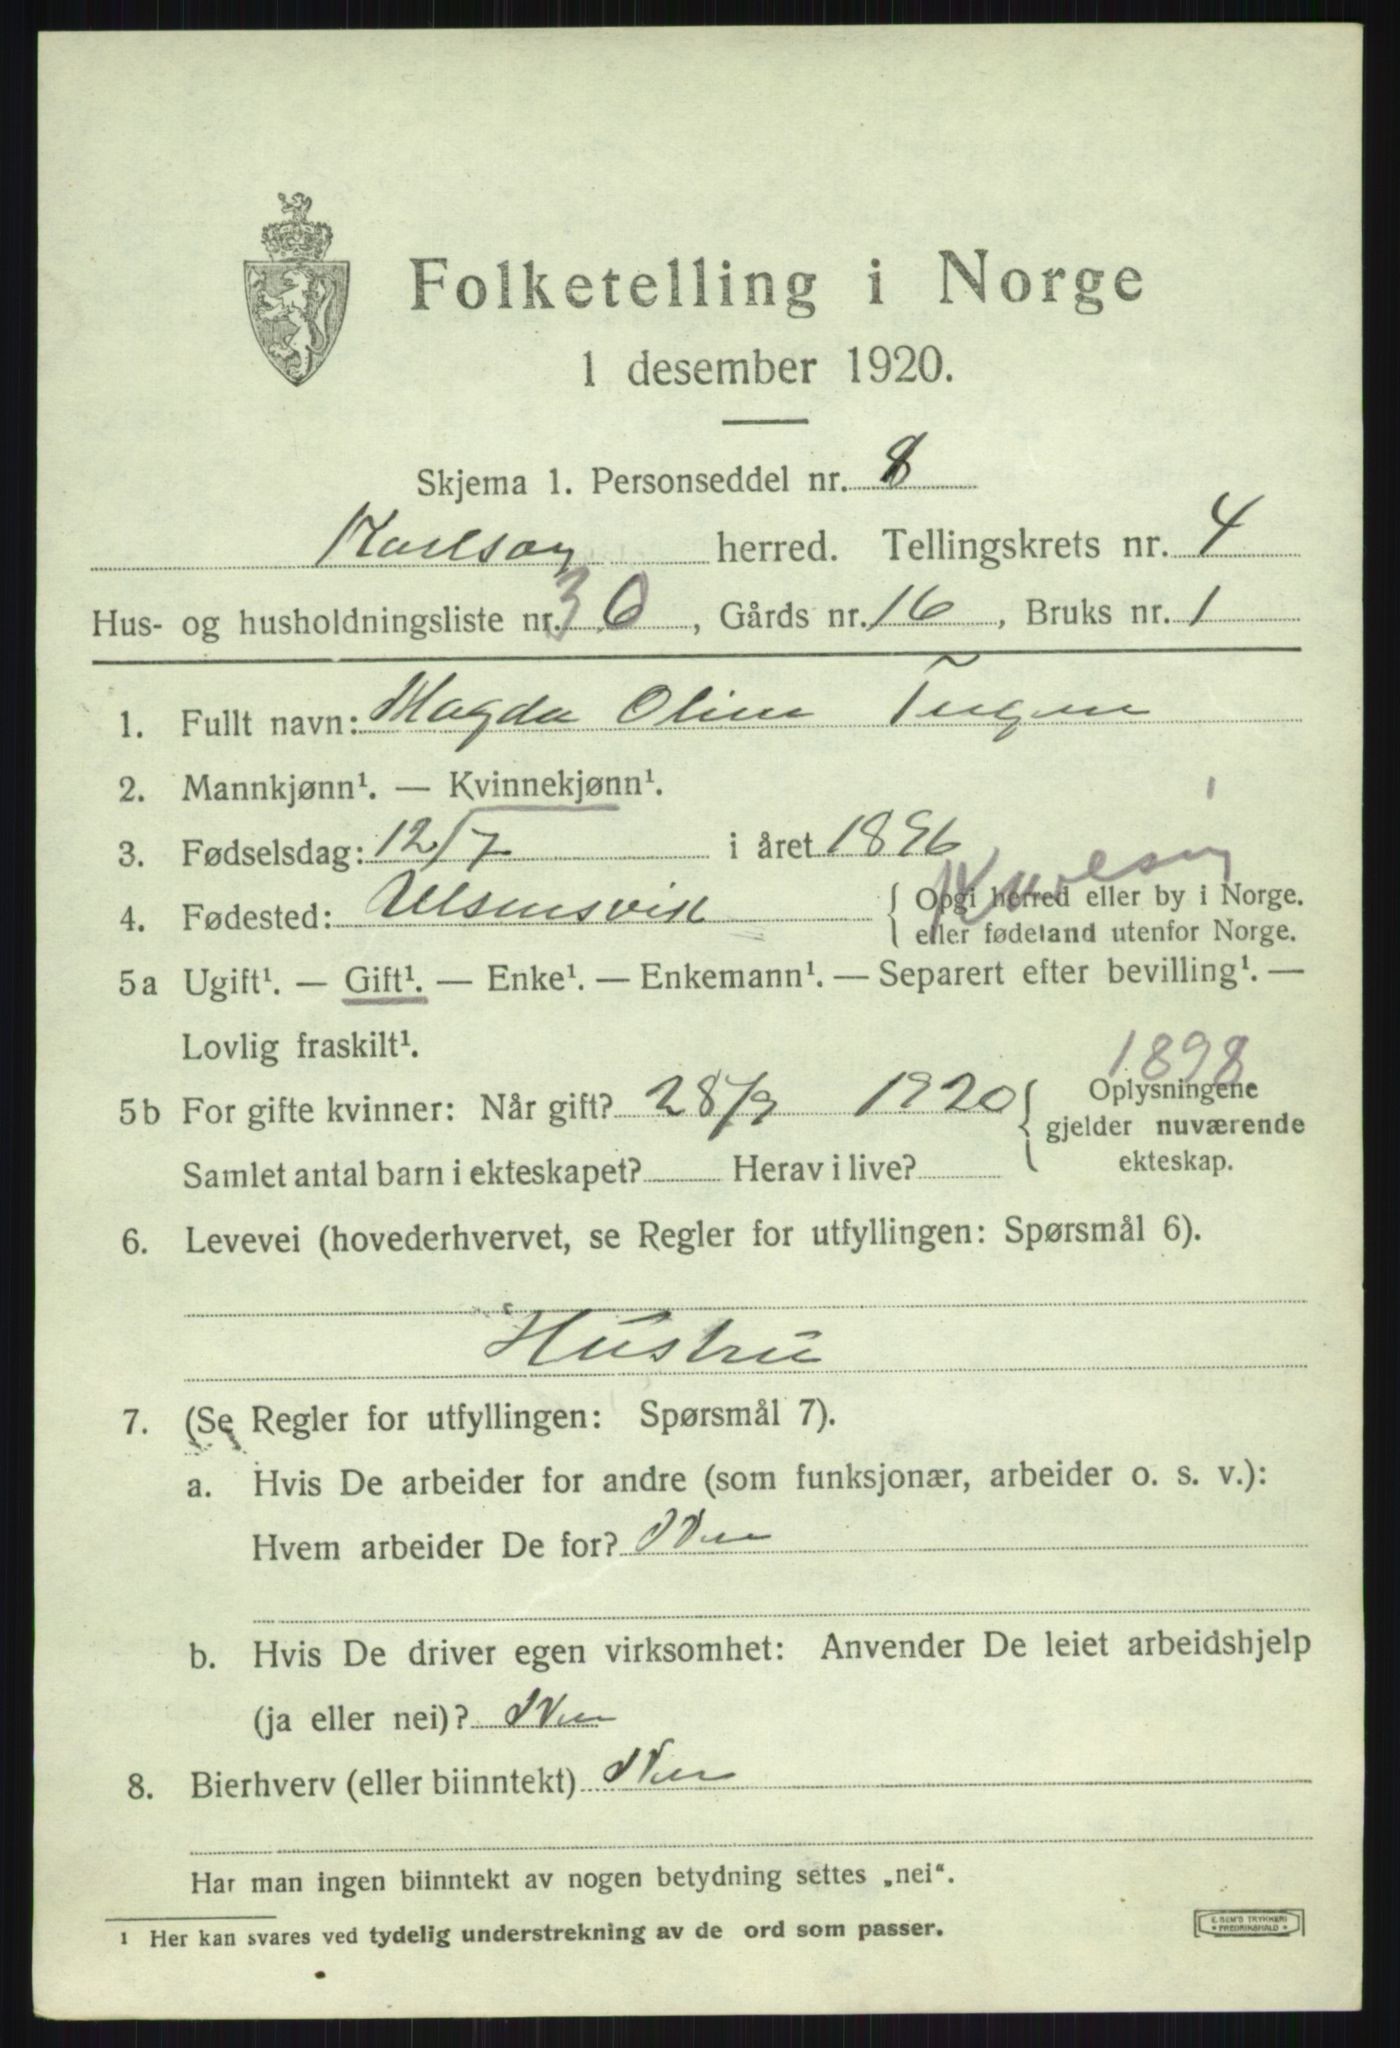 Folketelling i Norge
1 desember 1920.
Skjema 1. Personseddel nr. 8
Karlsøy herred. Tellingskrets nr. 4
Hus- og husholdningsliste nr. 30, Gårds nr. 16, Bruks nr. 1
1. Fullt navn: Magda Oline
2. Mannkjønn¹. — Kvinnekjønn¹.
3. Fødselsdag: 12/7 i året 1896
Karlsøy
4. Fødested: { Opgi herred eller by i Norge.
eller fødeland utenfor Norge.
5a Ugift¹. — Gift¹. — Enke¹. — Enkemann¹. — Separert efter bevilling¹. —
Lovlig fraskilt¹.
1898
5b For gifte kvinner: Når gift? 28/9 1920 { Oplysningene
gjelder nuværende
Samlet antal barn i ekteskapet? Herav i live? ekteskap.
6. Levevei (hovederhvervet, se Regler for utfyllingen: Spørsmål 6).
Hustru
7. (Se Regler for utfyllingen: Spørsmål 7).
a. Hvis De arbeider for andre (som funksjonær, arbeider o. s. v.):
Hvem arbeider De for? Nei
b. Hvis De driver egen virksomhet: Anvender De leiet arbeidshjelp
(ja eller nei)? Nei
8. Bierhverv (eller biinntekt) Nei
Har man ingen biinntekt av nogen betydning settes „nei“.
¹ Her kan svares ved tydelig understrekning av de ord som passer.
E. SEM'S TRYKKERI
FREDRIKSHALD